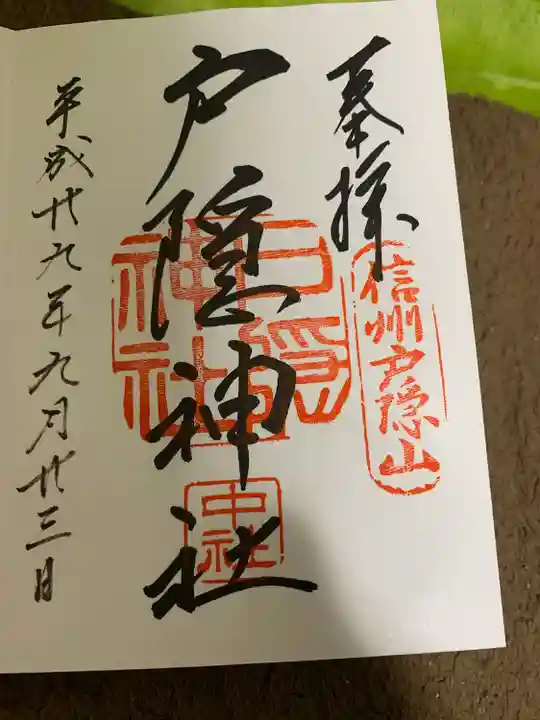 奉拝
信州戸隠山
戸隠神社
戸隠
神社
中社
平成廿九年九月廿三日